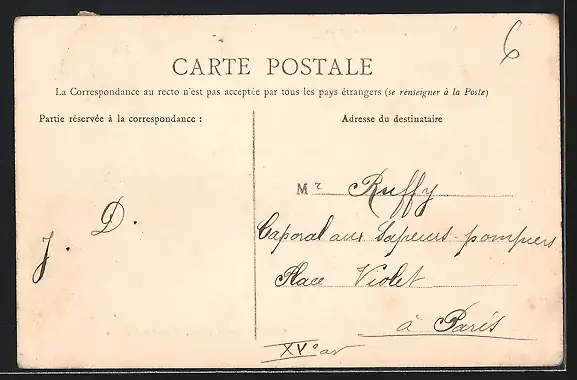 6
CARTE POSTALE
La Correspondance au recto n'est pas acceptée par tous les pays étrangers (se renseigner à la Poste)
Partie réservée à la correspondance :
J. D.
Adresse du destinataire
Mr Ruffy
Caporal aux Sapeurs-pompiers
Place Violet
à Paris
XVº ar